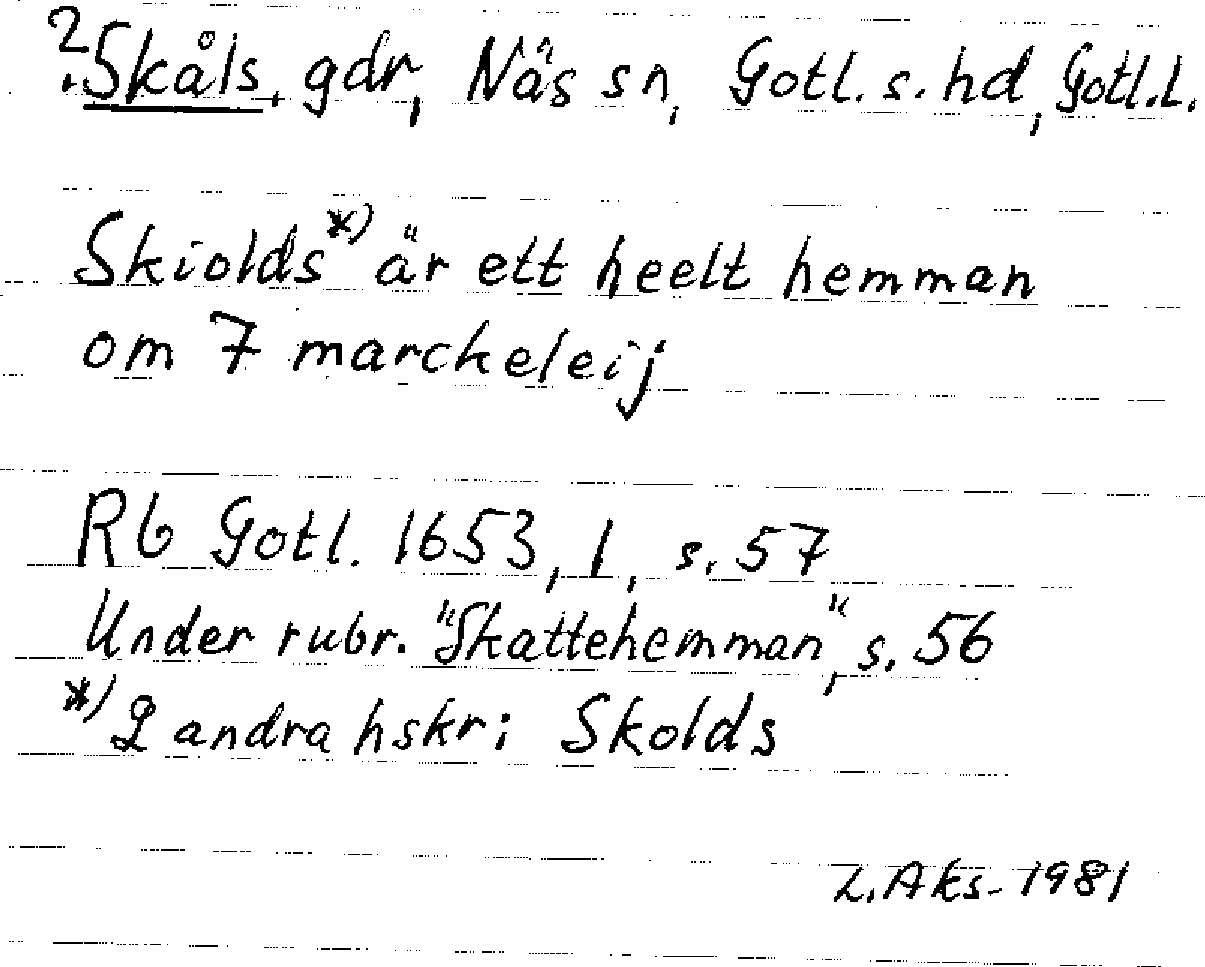 ?Skåls, gdr, Näs sn, Gotl. s. hd, Gotl. l.
Skiolds*) är ett heelt hemman
om 7 marckeleij
Rb Gotl. 1653, 1, s. 57
Under rubr. "Skattehemman", s. 56
*) 2 andra hskr: Skolds
L. Aks. 1981